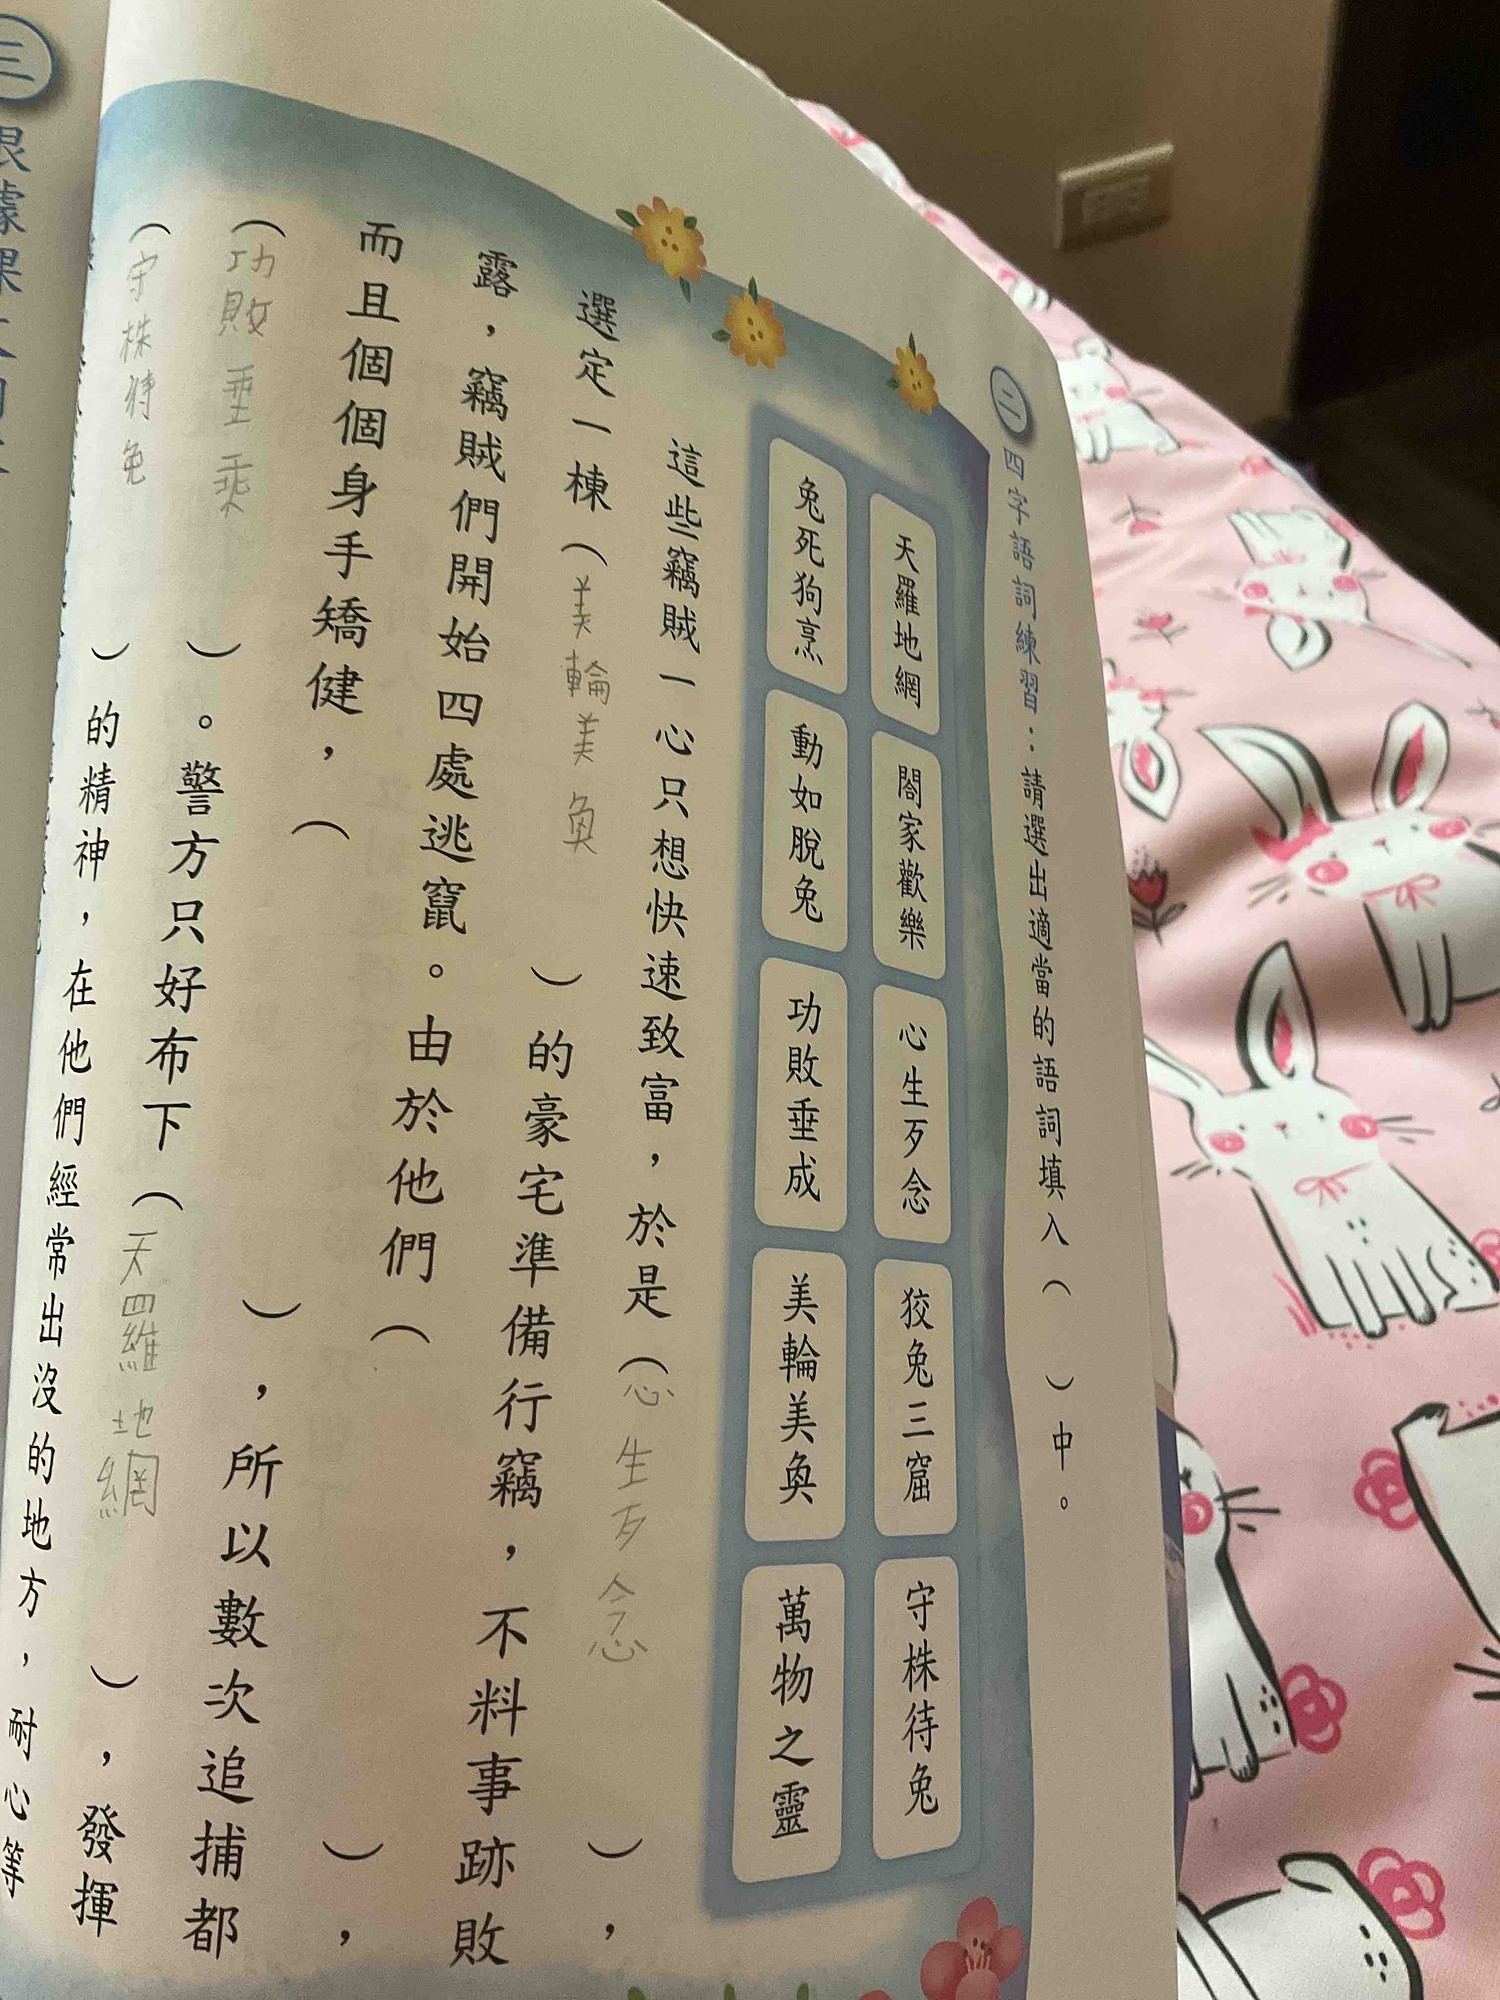 二 四字語詞練習：請選出適當的語詞填入（　）中。
天羅地網 閤家歡樂 心生歹念 狡兔三窟 守株待兔
兔死狗烹 動如脫兔 功敗垂成 美輪美奐 萬物之靈
這些竊賊一心只想快速致富，於是（心生歹念），
選定一棟（美輪美奐）的豪宅準備行竊，不料事跡敗
露，竊賊們開始四處逃竄。由於他們（　），
而且個個身手矯健，（　），所以數次追捕都
（功敗垂乘）。警方只好布下（天羅地網），發揮
（守株待免）的精神，在他們經常出沒的地方，耐心等
三 據課